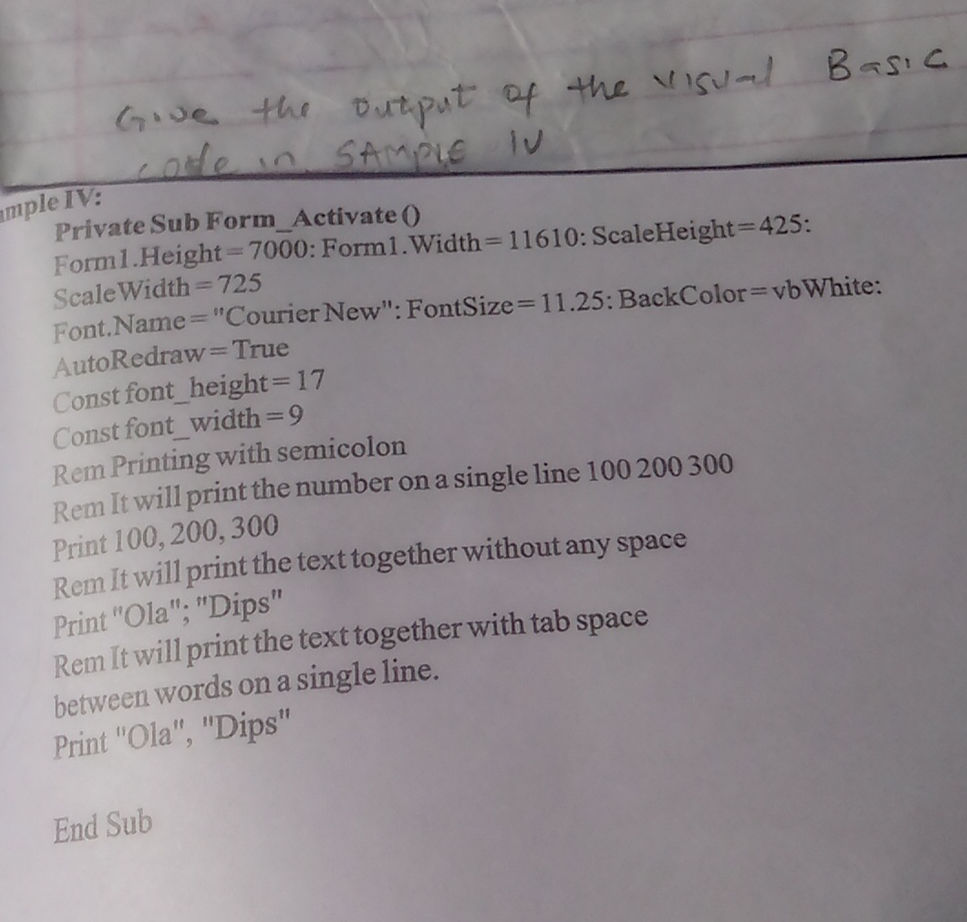 Give the output of the visual Basic
code in SAMPLE IV
mple IV:
Private Sub Form_Activate ()
Form1.Height = 7000: Form1.Width = 11610: ScaleHeight = 425:
ScaleWidth = 725
Font.Name = "Courier New": FontSize = 11.25: BackColor = vbWhite:
AutoRedraw = True
Const font_height = 17
Const font_width = 9
Rem Printing with semicolon
Rem It will print the number on a single line 100 200 300
Print 100, 200, 300
Rem It will print the text together without any space
Print "Ola"; "Dips"
Rem It will print the text together with tab space
between words on a single line.
Print "Ola", "Dips"
End Sub